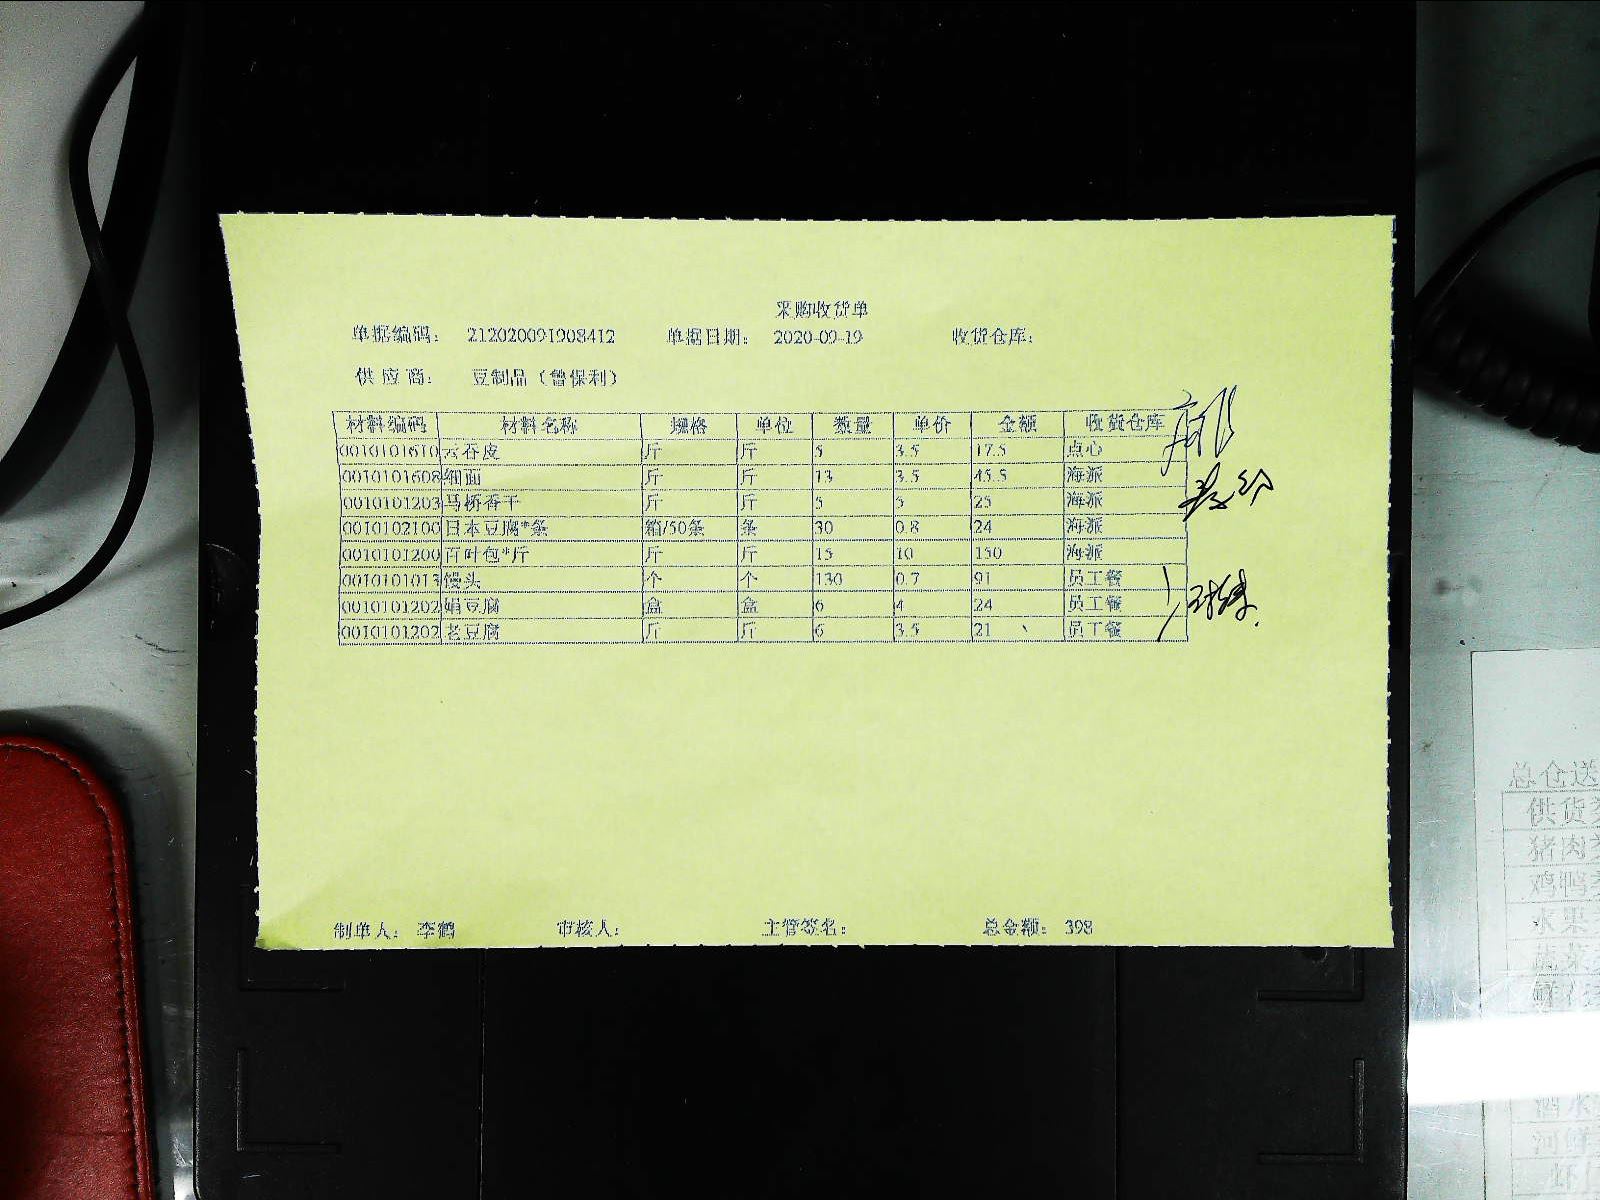 采购收货单
单据编码： 212020091908412 单据日期： 2020-09-19 收货仓库：
供 应 商： 豆制品（曾保利）
材料编码 材料名称 规格 单位 数量 单价 金额 收货仓库
0010101610 云吞皮 斤 斤 5 3.5 17.5 点心
0010101608 细面 斤 斤 13 3.5 45.5 海派
0010101203 马桥香干 斤 斤 5 5 25 海派
0010102100 日本豆腐*条 箱/50条 条 30 0.8 24 海派
0010101200 百叶包*斤 斤 斤 15 10 150 海派
0010101013 馒头 个 个 130 0.7 91 员工餐
0010101202 娟豆腐 盒 盒 6 4 24 员工餐
0010101202 老豆腐 斤 斤 6 3.5 21 员工餐
制单人： 李鹤 审核人： 主管签名： 总金额： 398
总仓送
供货
猪肉
鸡鸭
水果
蔬菜
酒水
河鲜
虾